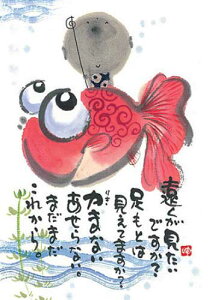 遠くが見たい
ですか?
足もとは
見えてますか?
力まない
あせらない
まだまだ
これから。